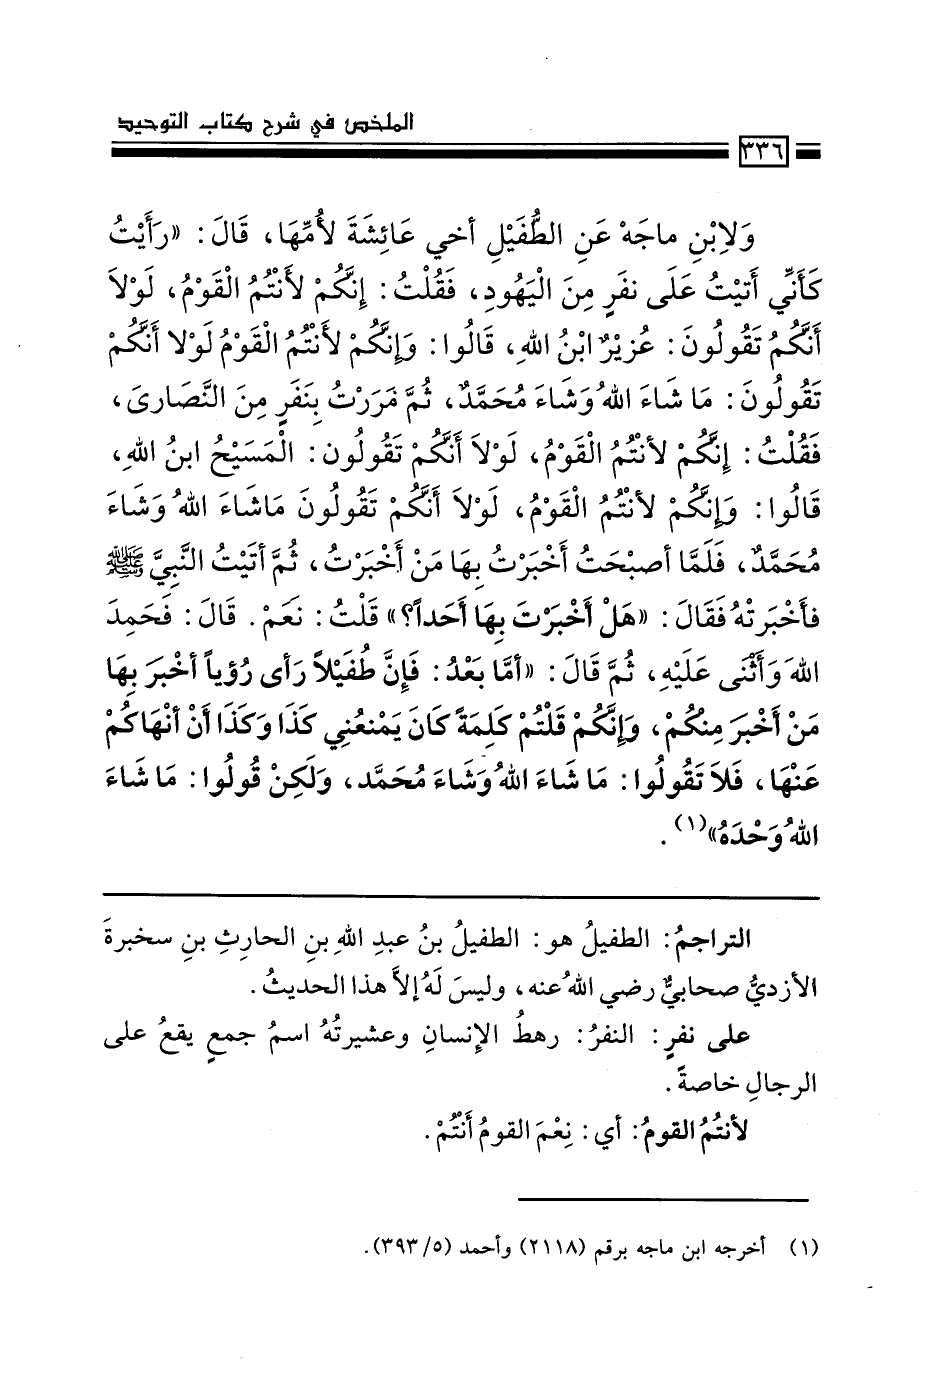 الملخص في شرح كتاب التوحيد
٣٣٦
وَلاِبْنِ ماجَهْ عَنِ الطُّفَيْلِ أخي عَائِشَةَ لأُمِّهَا، قَالَ: «رَأَيْتُ
كَأَنِّي أَتَيْتُ عَلَى نَفَرٍ مِنَ الْيَهُودِ، فَقُلْتُ: إنَّكُمْ لأَنْتُمُ الْقَوْمُ، لَوْلاَ
أَنَّكُمْ تَقُولُونَ: عُزيْرٌ ابْنُ اللهِ، قَالُوا: وَإنَّكُمْ لأَنْتُمُ الْقَوْمُ لَوْلا أنَّكُمْ
تَقُولُونَ: مَا شَاءَ اللهُ وَشَاءَ مُحَمَّدٌ، ثُمَّ مَرَرْتُ بِنَفَرٍ مِنَ النَّصَارىَ،
فَقُلْتُ: إنَّكُمْ لأنْتُمُ الْقَوْمُ، لَوْلاَ أَنَّكُمْ تَقُولُون: الْمَسَيْحُ ابنُ اللهِ،
قَالُوا: وَإنَّكُمْ لأَنْتُمُ الْقَوْمُ، لَوْلاَ أَنَّكُمْ تَقُولُونَ مَاشَاءَ اللهُ وَشَاءَ
مُحَمَّدٌ، فَلَمَّا أصبْحَتُ أخْبَرْتُ بِهَا مَنْ أَخْبَرْتُ، ثُمَّ أتَيْتُ النَّبِيَّ ﷺ
فأَخْبَرتْهُ فَقَالَ: «هَلْ أخْبَرْتَ بِهَا أَحَداً؟» قَلْتُ: نعَمْ. قَالَ: فَحَمِدَ
اللهَ وَأَثْنَى عَلَيْهِ، ثُمَّ قَالَ: «أمَّا بَعْدُ: فَإنَّ طُفَيْلاً رَأى رُؤياً أخْبَرَ بِهَا
مَنْ أخْبَرَ مِنكُمْ، وَإنَّكُمْ قَلْتُمْ كَلِمَةً كَانَ يَمْنَعُنِي كَذَا وَكَذَا أنْ أنْهَاكُمْ
عَنْهَا، فَلاَ تَقُولُوا: مَا شَاءَ اللهُ وَشَاءَ مُحَمَّد، وَلَكِنْ قُولُوا: مَا شَاءَ
اللهُ وَحْدَهُ»(١).
التراجمُ: الطفيلُ هو: الطفيلُ بنُ عبدِ اللهِ بنِ الحارِثِ بنِ سخبرةَ
الأزديُّ صحابيٌّ رضي اللهُ عنه، وليسَ لَهُ إلاَّ هذا الحديثُ.
على نفرٍ: النفرُ: رهطُ الإنسانِ وعشيرتُهُ اسمُ جمعٍ يقعُ على
الرجالِ خاصةً.
لأنتُمُ القومُ: أي: نِعْمَ القومُ أَنْتُمْ.
(١) أخرجه ابن ماجه برقم (٢١١٨) وأحمد (٣٩٣/٥).